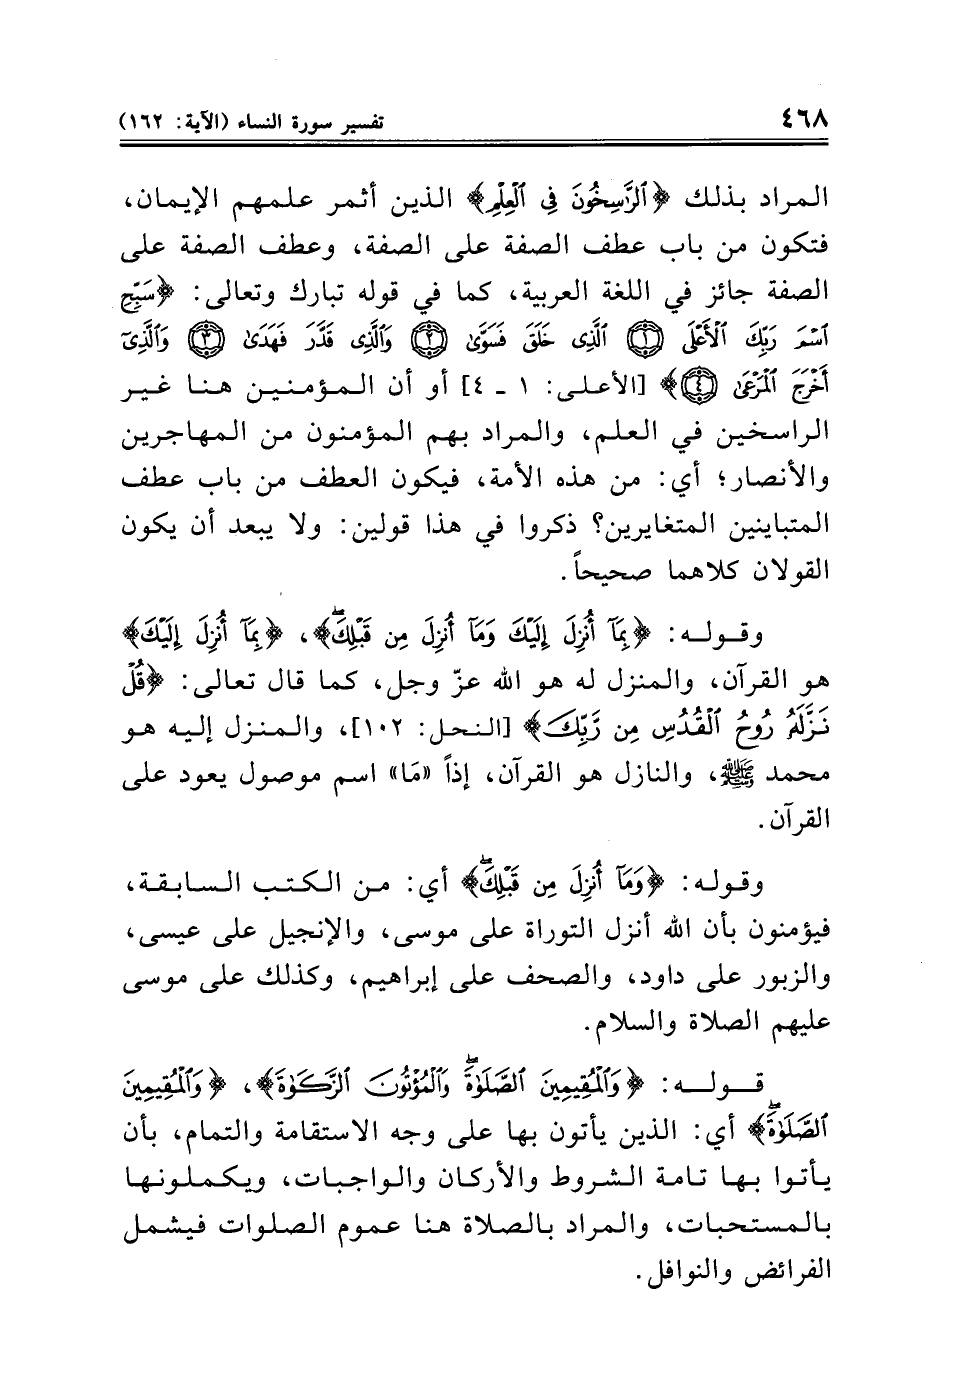 ٤٦٨
تفسير سورة النساء (الآية: ١٦٢)
المراد بذلك ﴿الرَّاسِخُونَ فِي الْعِلْمِ﴾ الذين أثمر علمهم الإيمان،
فتكون من باب عطف الصفة على الصفة، وعطف الصفة على
الصفة جائز في اللغة العربية، كما في قوله تبارك وتعالى: ﴿سَبِّحِ
اسْمَ رَبِّكَ الْأَعْلَى ۝١ الَّذِي خَلَقَ فَسَوَّىٰ ۝٢ وَالَّذِي قَدَّرَ فَهَدَىٰ ۝٣ وَالَّذِيٓ
أَخْرَجَ الْمَرْعَىٰ ۝٤﴾ [الأعلى: ١ ـ ٤] أو أن المؤمنين هنا غير
الراسخين في العلم، والمراد بهم المؤمنون من المهاجرين
والأنصار؛ أي: من هذه الأمة، فيكون العطف من باب عطف
المتباينين المتغايرين؟ ذكروا في هذا قولين: ولا يبعد أن يكون
القولان كلاهما صحيحاً.
وقوله: ﴿بِمَآ أُنزِلَ إِلَيْكَ وَمَآ أُنزِلَ مِن قَبْلِكَۖ﴾، ﴿بِمَآ أُنزِلَ إِلَيْكَ﴾
هو القرآن، والمنزل له هو الله عزّ وجل، كما قال تعالى: ﴿قُلْ
نَزَّلَهُۥ رُوحُ الْقُدُسِ مِن رَّبِّكَ﴾ [النحل: ١٠٢]، والمنزل إليه هو
محمد ﷺ، والنازل هو القرآن، إذاً «مَا» اسم موصول يعود على
القرآن.
وقوله: ﴿وَمَآ أُنزِلَ مِن قَبْلِكَۖ﴾ أي: من الكتب السابقة،
فيؤمنون بأن الله أنزل التوراة على موسى، والإنجيل على عيسى،
والزبور على داود، والصحف على إبراهيم، وكذلك على موسى
عليهم الصلاة والسلام.
قوله: ﴿وَالْمُقِيمِينَ الصَّلَوٰةَۖ وَالْمُؤْتُونَ الزَّكَوٰةَ﴾، ﴿وَالْمُقِيمِينَ
الصَّلَوٰةَۖ﴾ أي: الذين يأتون بها على وجه الاستقامة والتمام، بأن
يأتوا بها تامة الشروط والأركان والواجبات، ويكملونها
بالمستحبات، والمراد بالصلاة هنا عموم الصلوات فيشمل
الفرائض والنوافل.